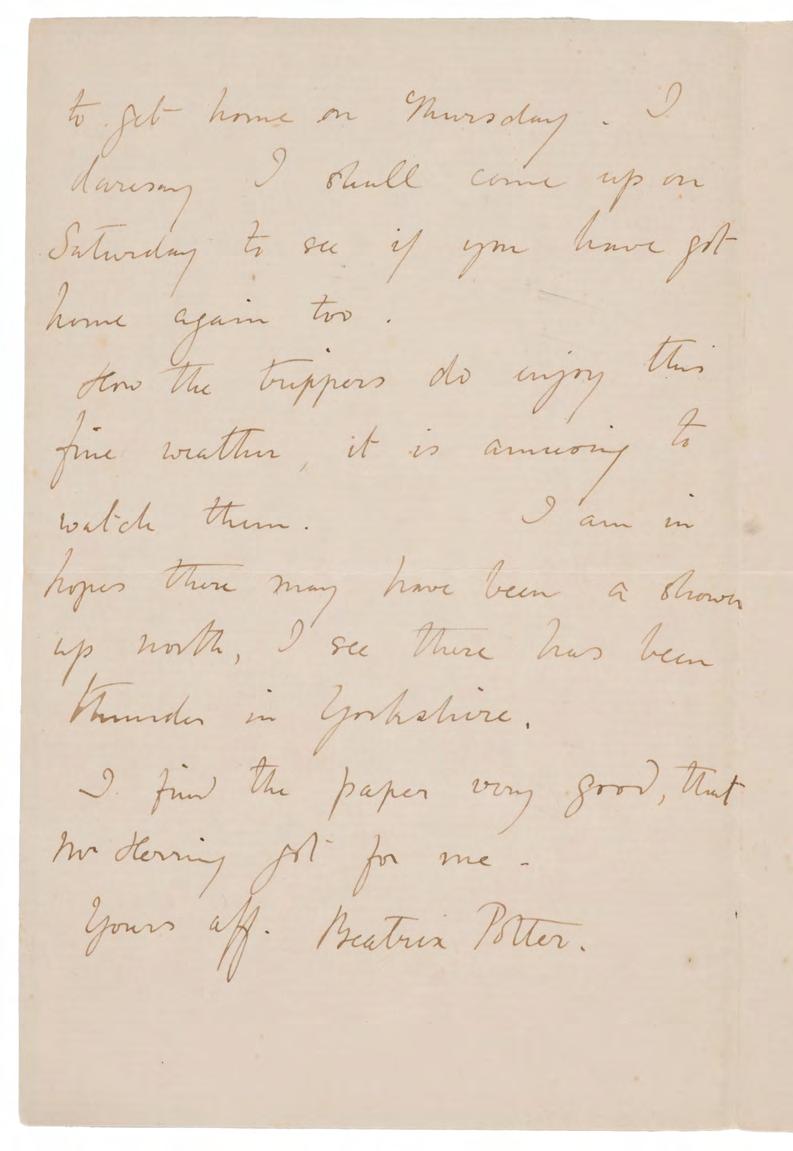 to get home on Thursday. I
daresay I shall come up on
Saturday to see if you have got
home again too.
How the trippers do enjoy this
fine weather, it is amusing to
watch them. I am in
hopes there may have been a shower
up north, I see there has been
thunder in Yorkshire.
I find the paper very good, that
Mr Herring got for me -
Yours aff. Beatrix Potter.